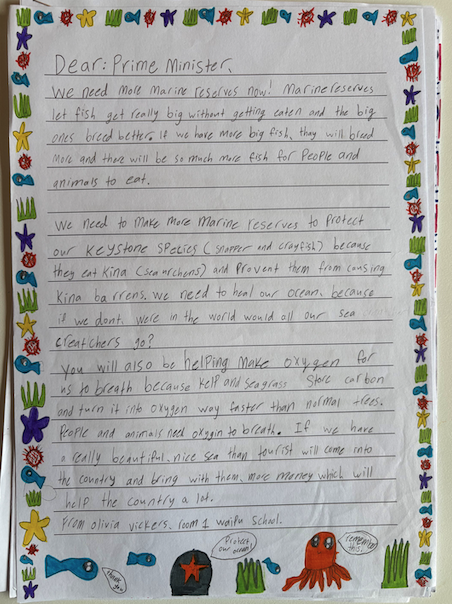 Dear: Prime Minister,
We need More Marine reserves now! Marine reserves
let fish get really big without getting eaten and the big
ones breed better. If we have more big fish, they will breed
More and there will be so much more fish for people and
animals to eat.
We need to make more marine reserves to protect
our keystone species (snapper and crayfish) because
they eat kina (searchens) and prevent them from cousing
kina barrens. we need to heal our ocean. because
if we dont. were in the world would all our sea
creatchers go?
You will also be helping make oxygen for
us to breath because kelp and seagrass store carbon
and turn it into oxygen way faster than normal trees.
People and animals need oxygin to breath. If we have
a really beautiful nice sea than tourist will come into
the country and bring with them. more money which will
help the country a lot.
From olivia vickers. room 1 waipu school.
Thank you
Protect our ocean
remember this.